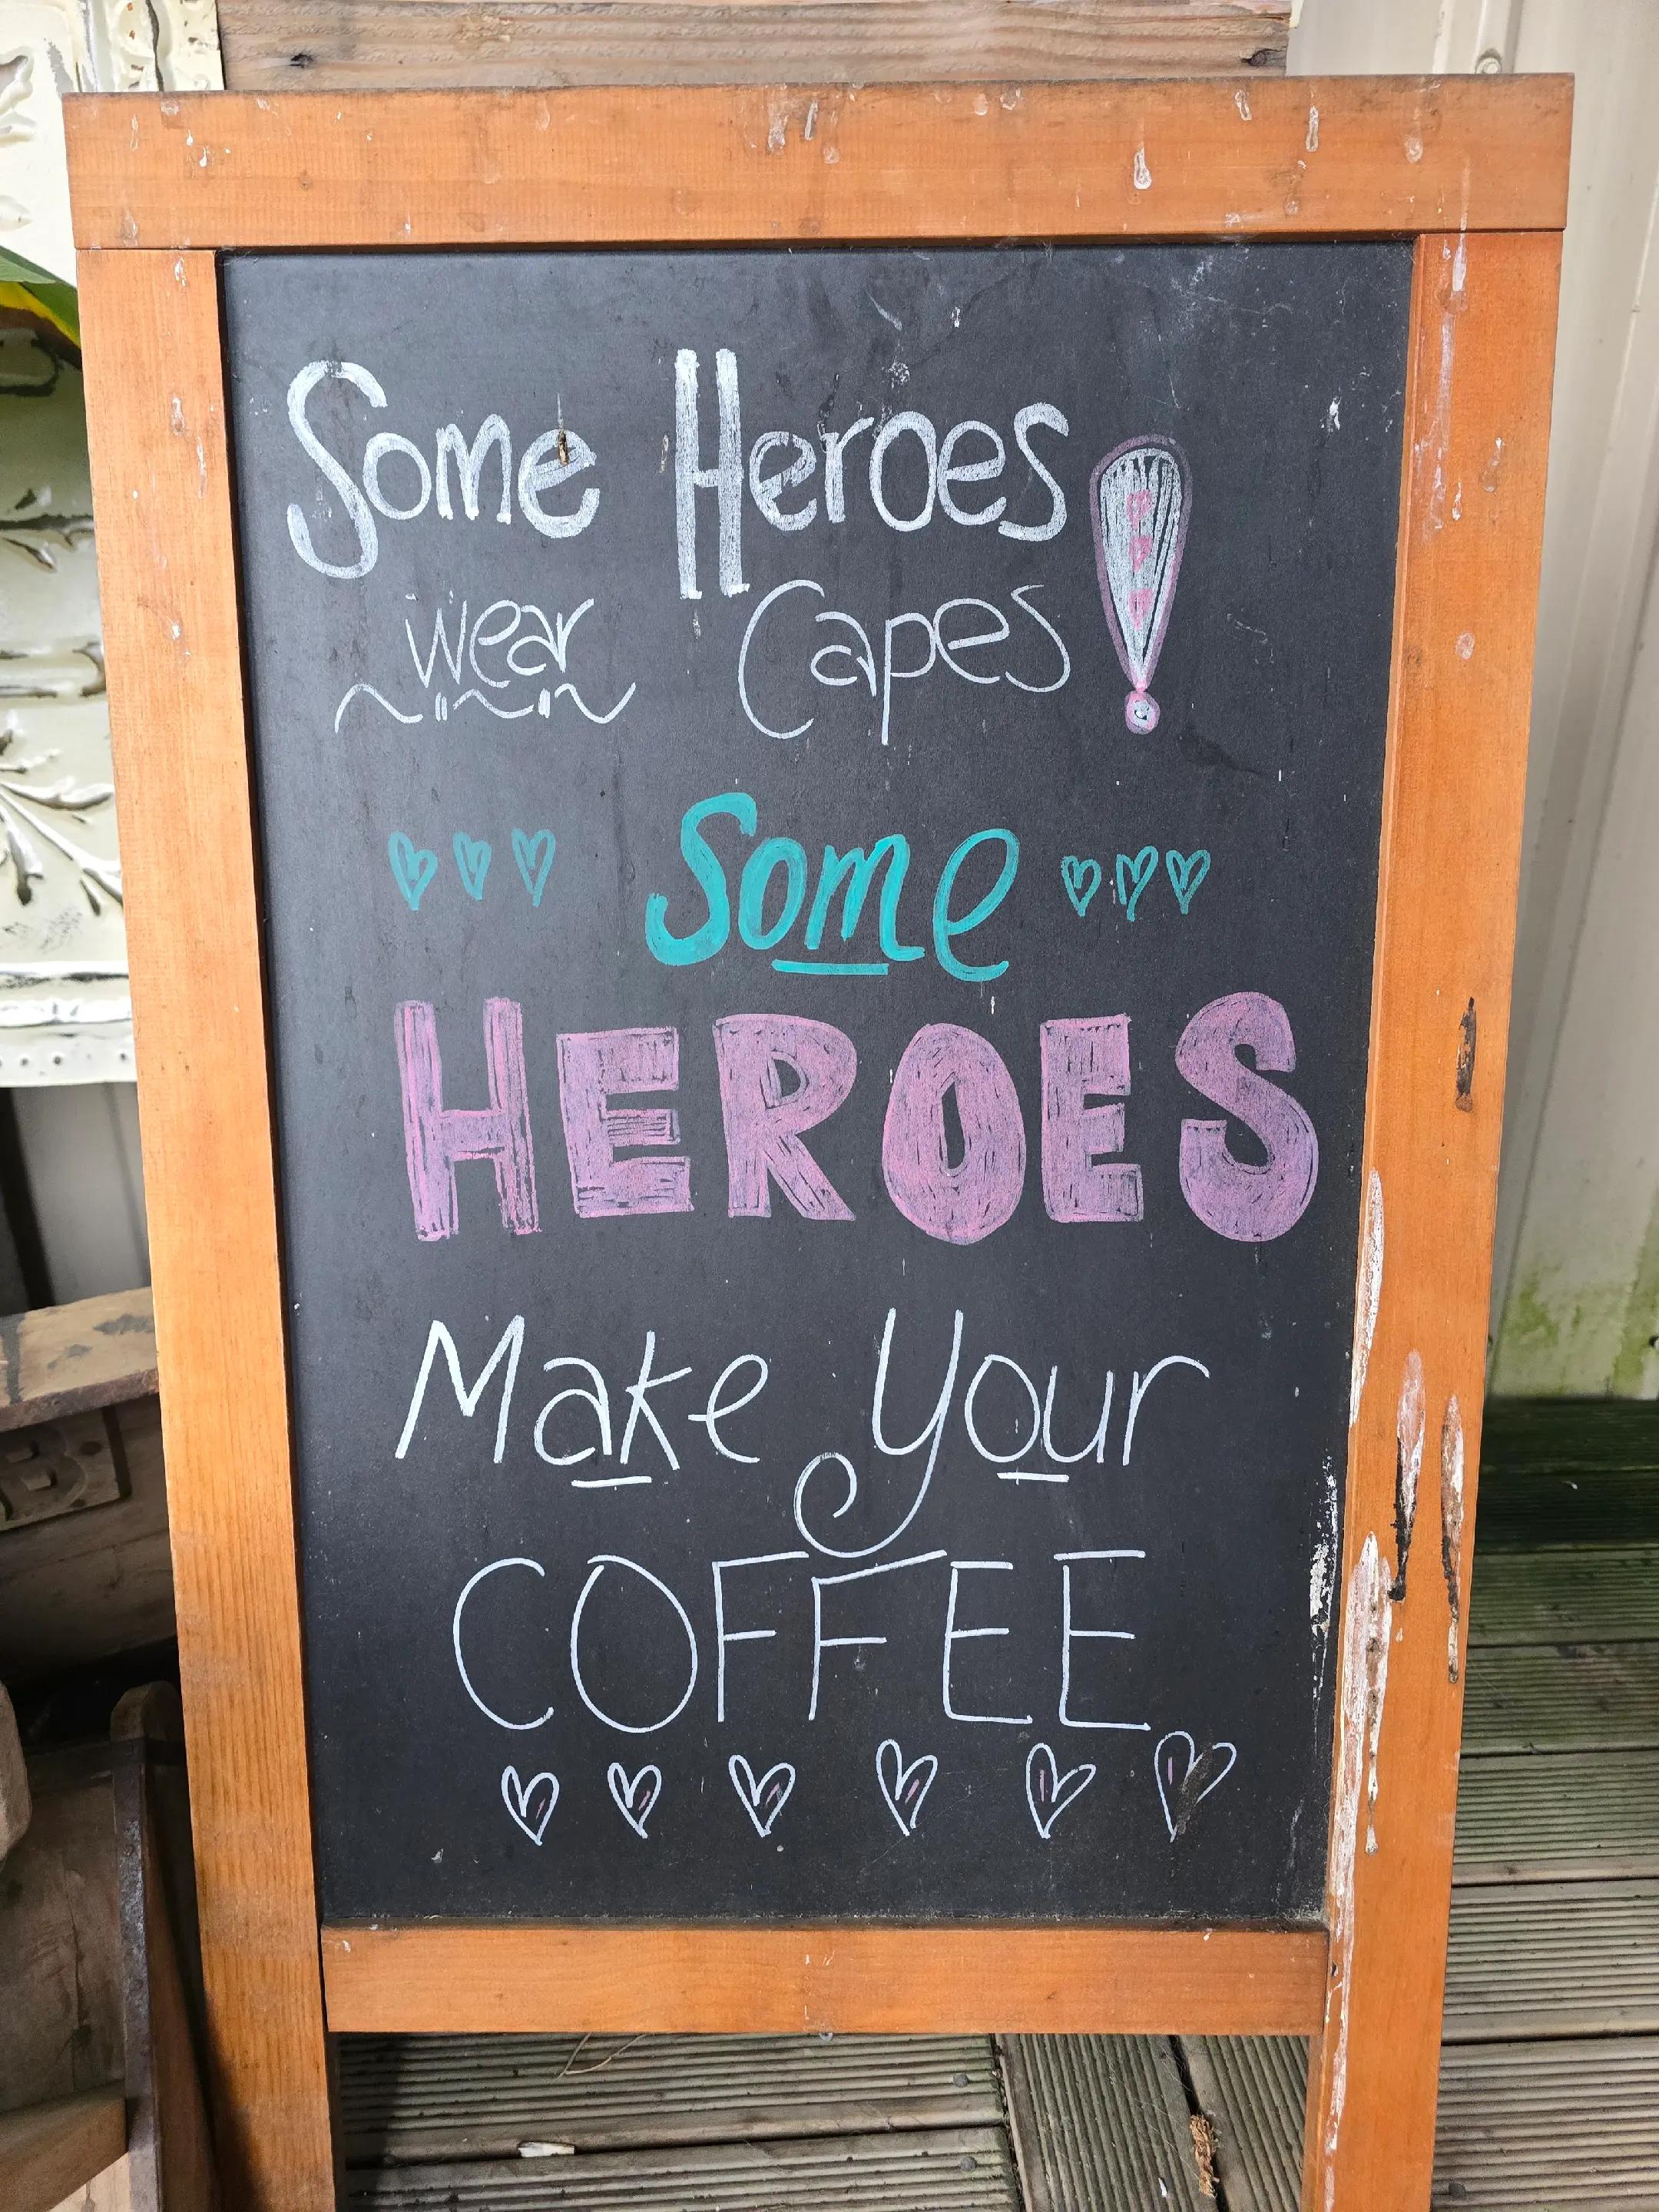 Some Heroes
wear Capes!
Some
HEROES
Make Your
COFFEE